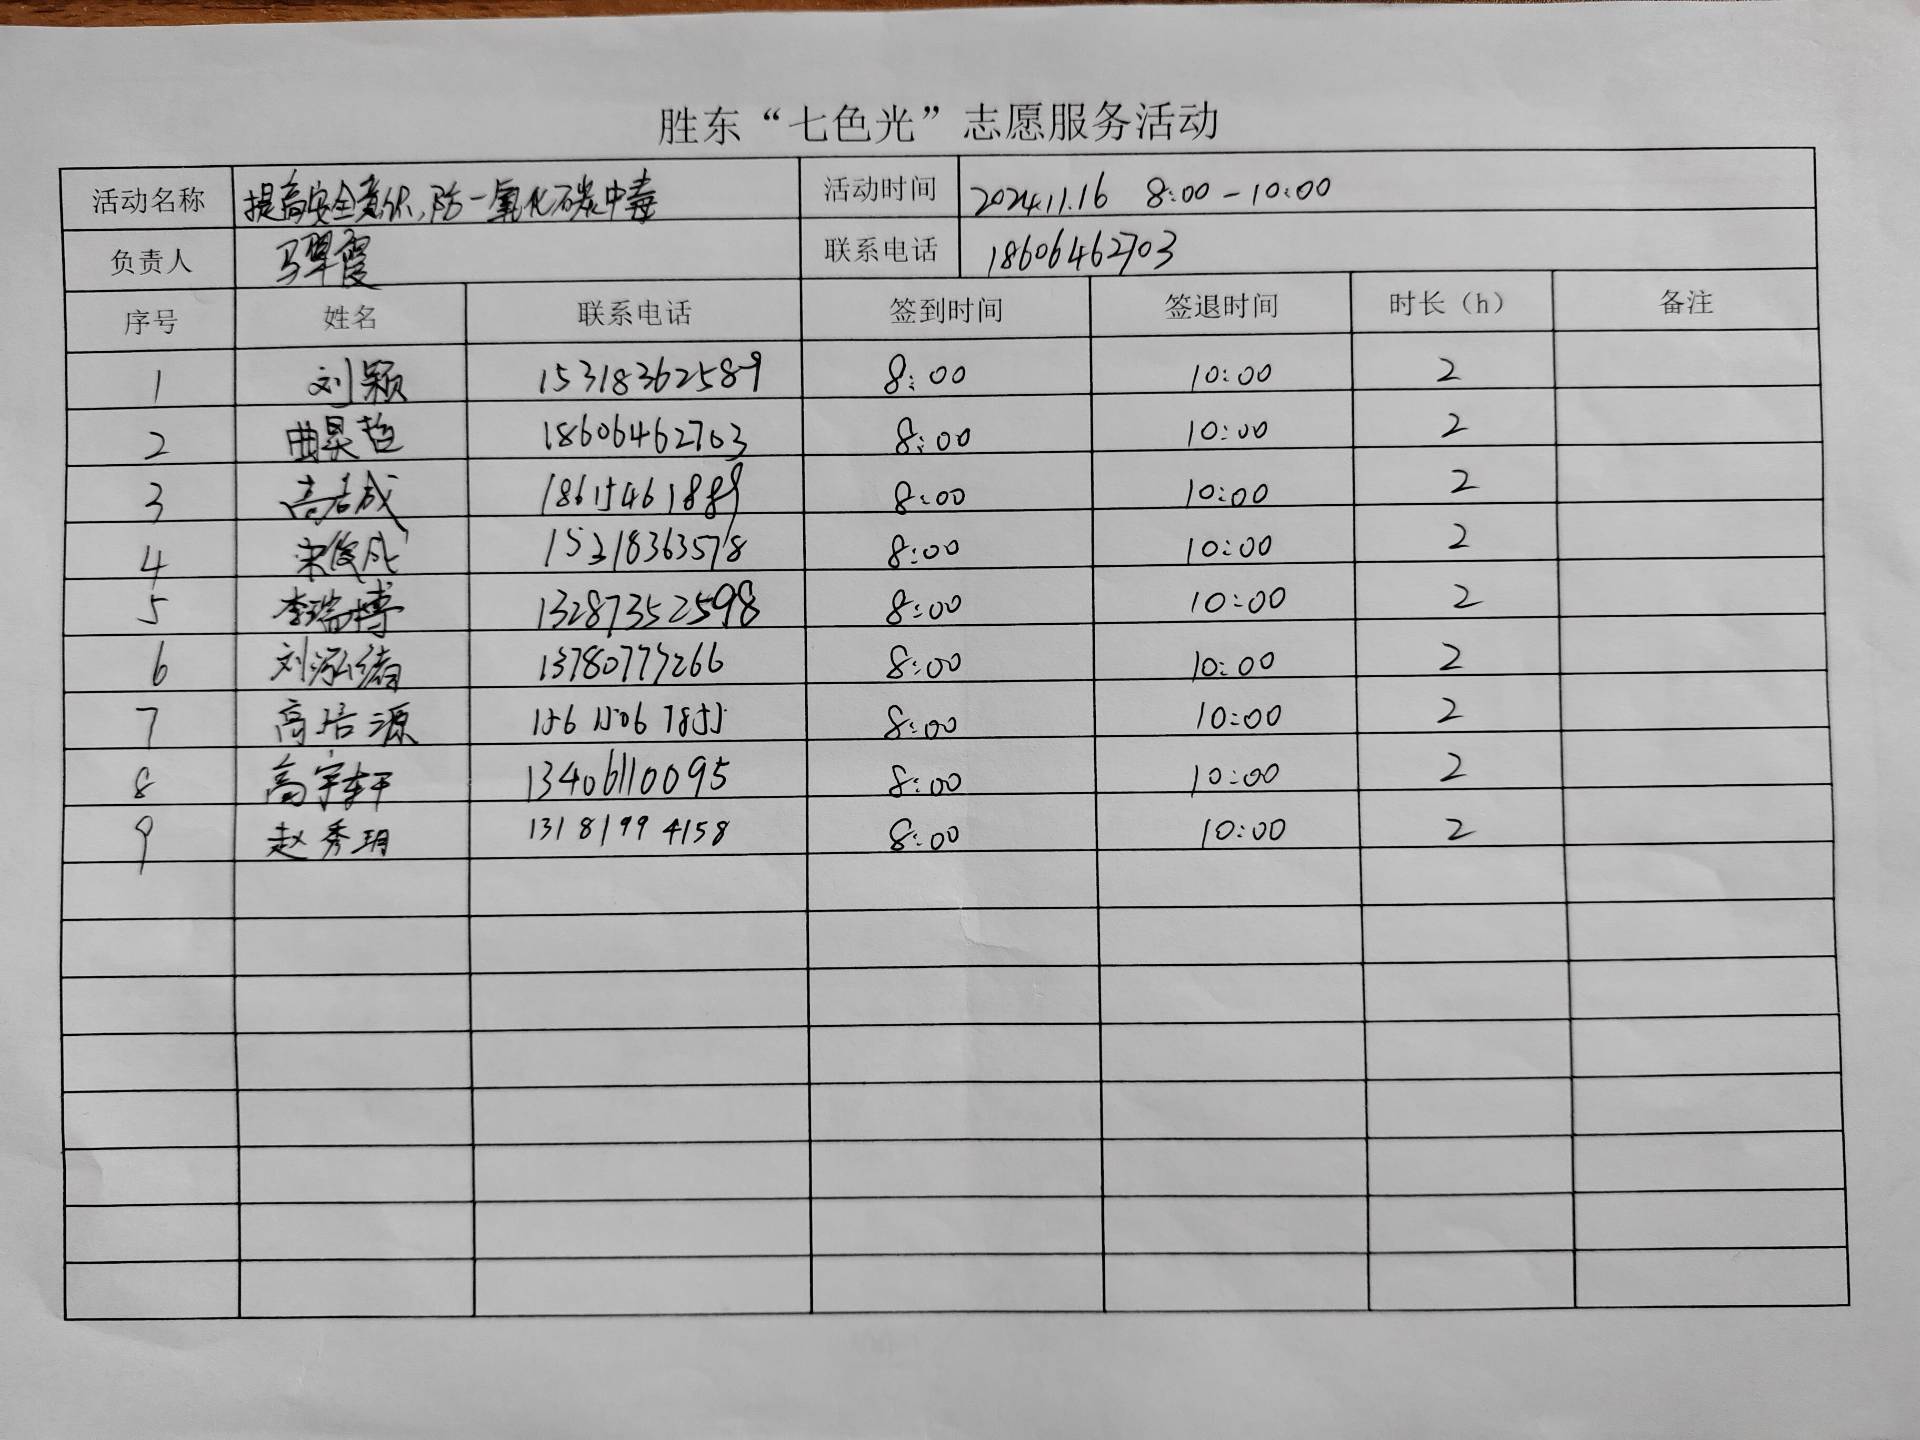 胜东“七色光”志愿服务活动
活动名称 提高安全意识,防一氧化碳中毒 活动时间 2024.11.16 8:00-10:00
负责人 马翠霞 联系电话 18606462703
序号 姓名 联系电话 签到时间 签退时间 时长(h) 备注
1 刘颖 15318362589 8:00 10:00 2
2 曲昊哲 18606462703 8:00 10:00 2
3 高若成 18615461889 8:00 10:00 2
4 宋俊成 15318363578 8:00 10:00 2
5 李瑞博 13287352598 8:00 10:00 2
6 刘泓绪 13780777266 8:00 10:00 2
7 高浩源 15615067855 8:00 10:00 2
8 高宇轩 13406110095 8:00 10:00 2
9 赵秀玥 13181994158 8:00 10:00 2